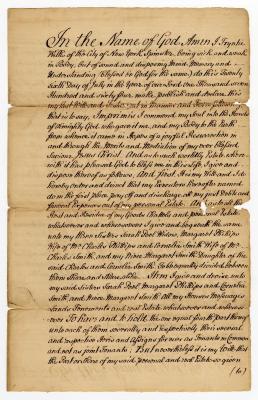 In the Name of God, Amen I Tryntie
of the City of New York Spinster, being sick and weak
in Body, but of sound and disposing Mind Memory and
Understanding (blessed be God for the same) do this twenty
sixth Day of July in the Year of our Lord One thousand seven
Hundred and make publish and declare this
my last Will and Testament in Manner and form following
that is to say, Imprimis I commend my Soul into the Hands
of Almighty God who gave it me, and my Body to the Earth
from whence it came in Hopes of a joyfull Resurrection in
and through the Merits and Mediation of my ever blessed
Saviour Jesus Christ And as to such worldly Estate where
with it has pleased God to bless me in this Life I give and
dispose thereof as follows, And first It is my Will and I do
hereby order and direct that my Executors hereafter named
do in the first place pay and discharge all my just Debts and
funeral Expences out of my personal Estate. As to all the
Rest and Residue of my Goods Chattels and personal Estate
whatsoever and wheresoever I give and bequeath the same
unto my Sisters Sarah Margaret Phillips
Wife of Mr Charles Phillips and Cornelia Smith Wife of Mr
Charles Smith, and my Niece Margaret Smith Daughter of the
said Charles and Cornelia Smith to be equally divided between
them Share and Share alike. Item I give and devise unto
my said Sisters Sarah Margaret Phillips and Cornelia
Smith and Niece Margaret Smith all my Houses Messuages
Lands Tenements and real Estate whatsoever and wheresoe
ever To have and to hold the one equal fourth part thereof
unto each of them severally and respectively their several
and respective Heirs and Assigns for ever as Tenants in Common
and not as joint Tenants, But nevertheless it is my Will that
the Part or Share of my said personal and real Estate so given
(to)